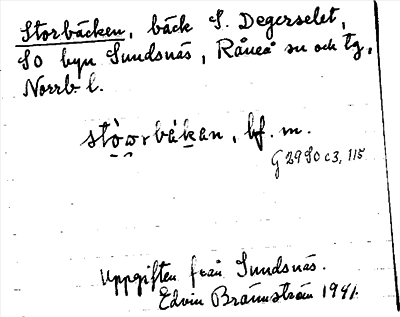 Storbäcken, bäck S. Degerselet,
SO byn Sundsnäs, Råneå sn och tg,
Norrb l.
stò̰o̰rbá̰k̰an, bf. m.
G 2980 c3, 115
Uppgiften från Sundsnäs.
Edvin Brännström 1941.